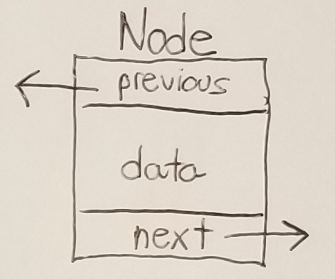 Node
previous
data
next